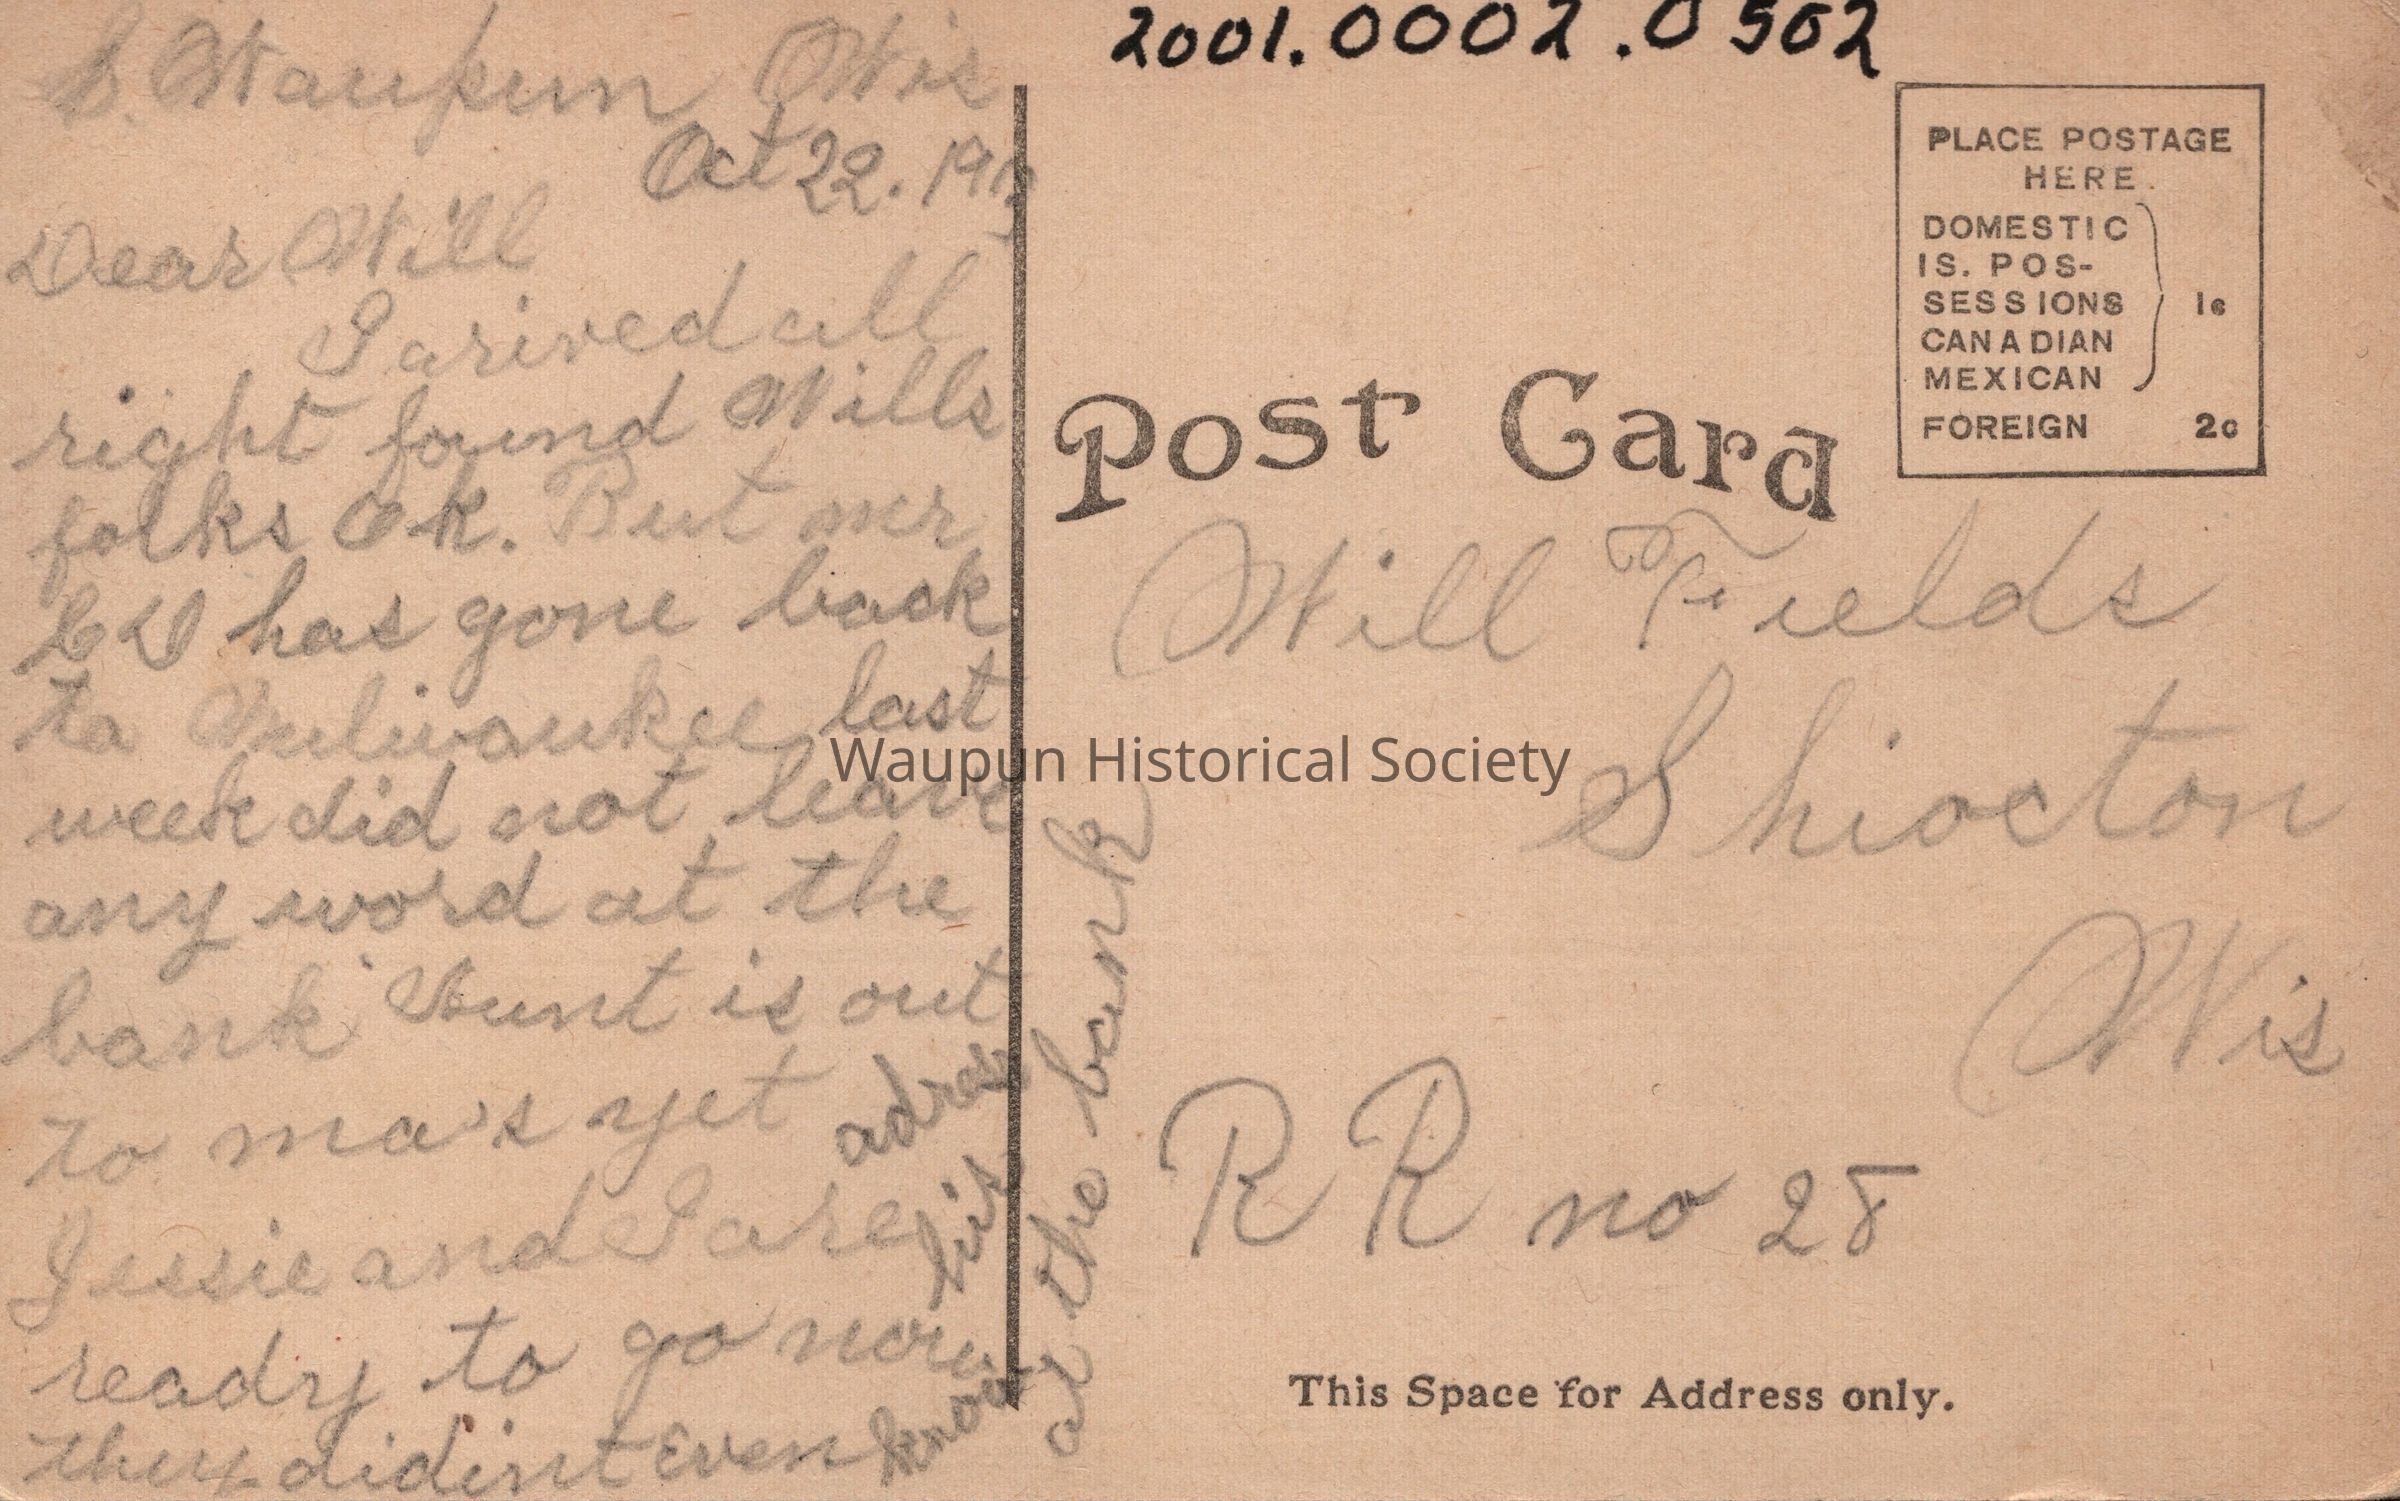 2001.0002.0502
S. Waupun Wis
Oct 22. 191
Dear Will
I arived all
right found Wills
folks O.K. But mr
has gone back
to Milwaukee last
week did not leave
any word at the
bank Hunt is out
to ma's yet
Jessie and I are
ready to go now
they didint Even know
his adress
at the bank
Post Card
PLACE POSTAGE
HERE.
DOMESTIC
IS. POS-
SESSIONS 1c
CANADIAN
MEXICAN
FOREIGN 2c
Will Fields
Shiocton
Wis
R R no 28
This Space for Address only.
Waupun Historical Society